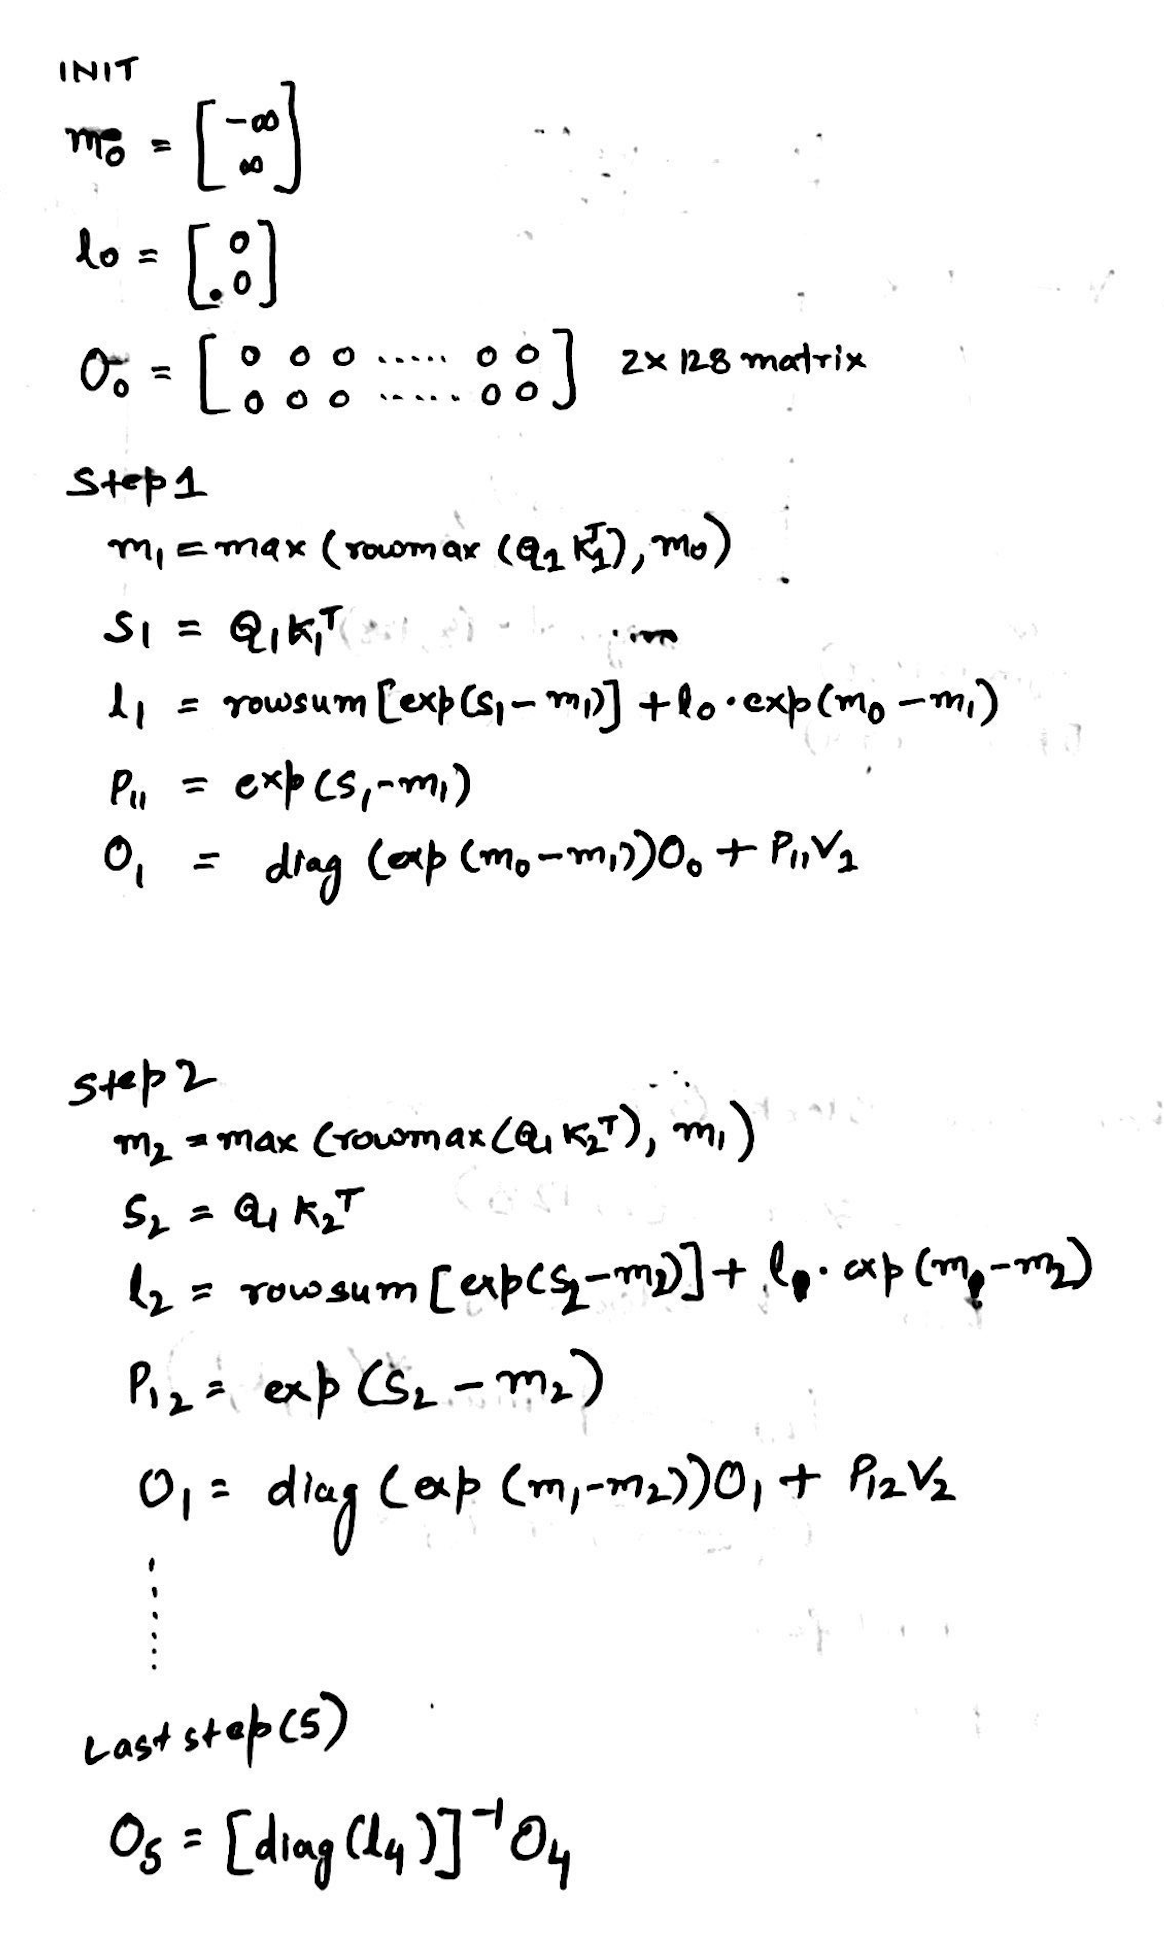 INIT
m₀ = [-∞
∞]
l₀ = [0
0]
O₀ = [0 0 0 ..... 0 0
0 0 0 ...... 0 0] 2x128 matrix
Step 1
m₁ = max (rowmax (Q₁ K₁ᵀ), m₀)
S₁ = Q₁K₁ᵀ
l₁ = rowsum [exp(S₁ - m₁)] + l₀ · exp(m₀ - m₁)
P₁₁ = exp(S₁ - m₁)
O₁ = diag (exp (m₀ - m₁))O₀ + P₁₁V₁
Step 2
m₂ = max (rowmax(Q₁ K₂ᵀ), m₁)
S₂ = Q₁ K₂ᵀ
l₂ = rowsum [exp(S₂ - m₂)] + l₁ · exp (m₁ - m₂)
P₁₂ = exp (S₂ - m₂)
O₁ = diag (exp (m₁ - m₂))O₁ + P₁₂V₂
Last step (5)
O₅ = [diag (l₄)]⁻¹ O₄